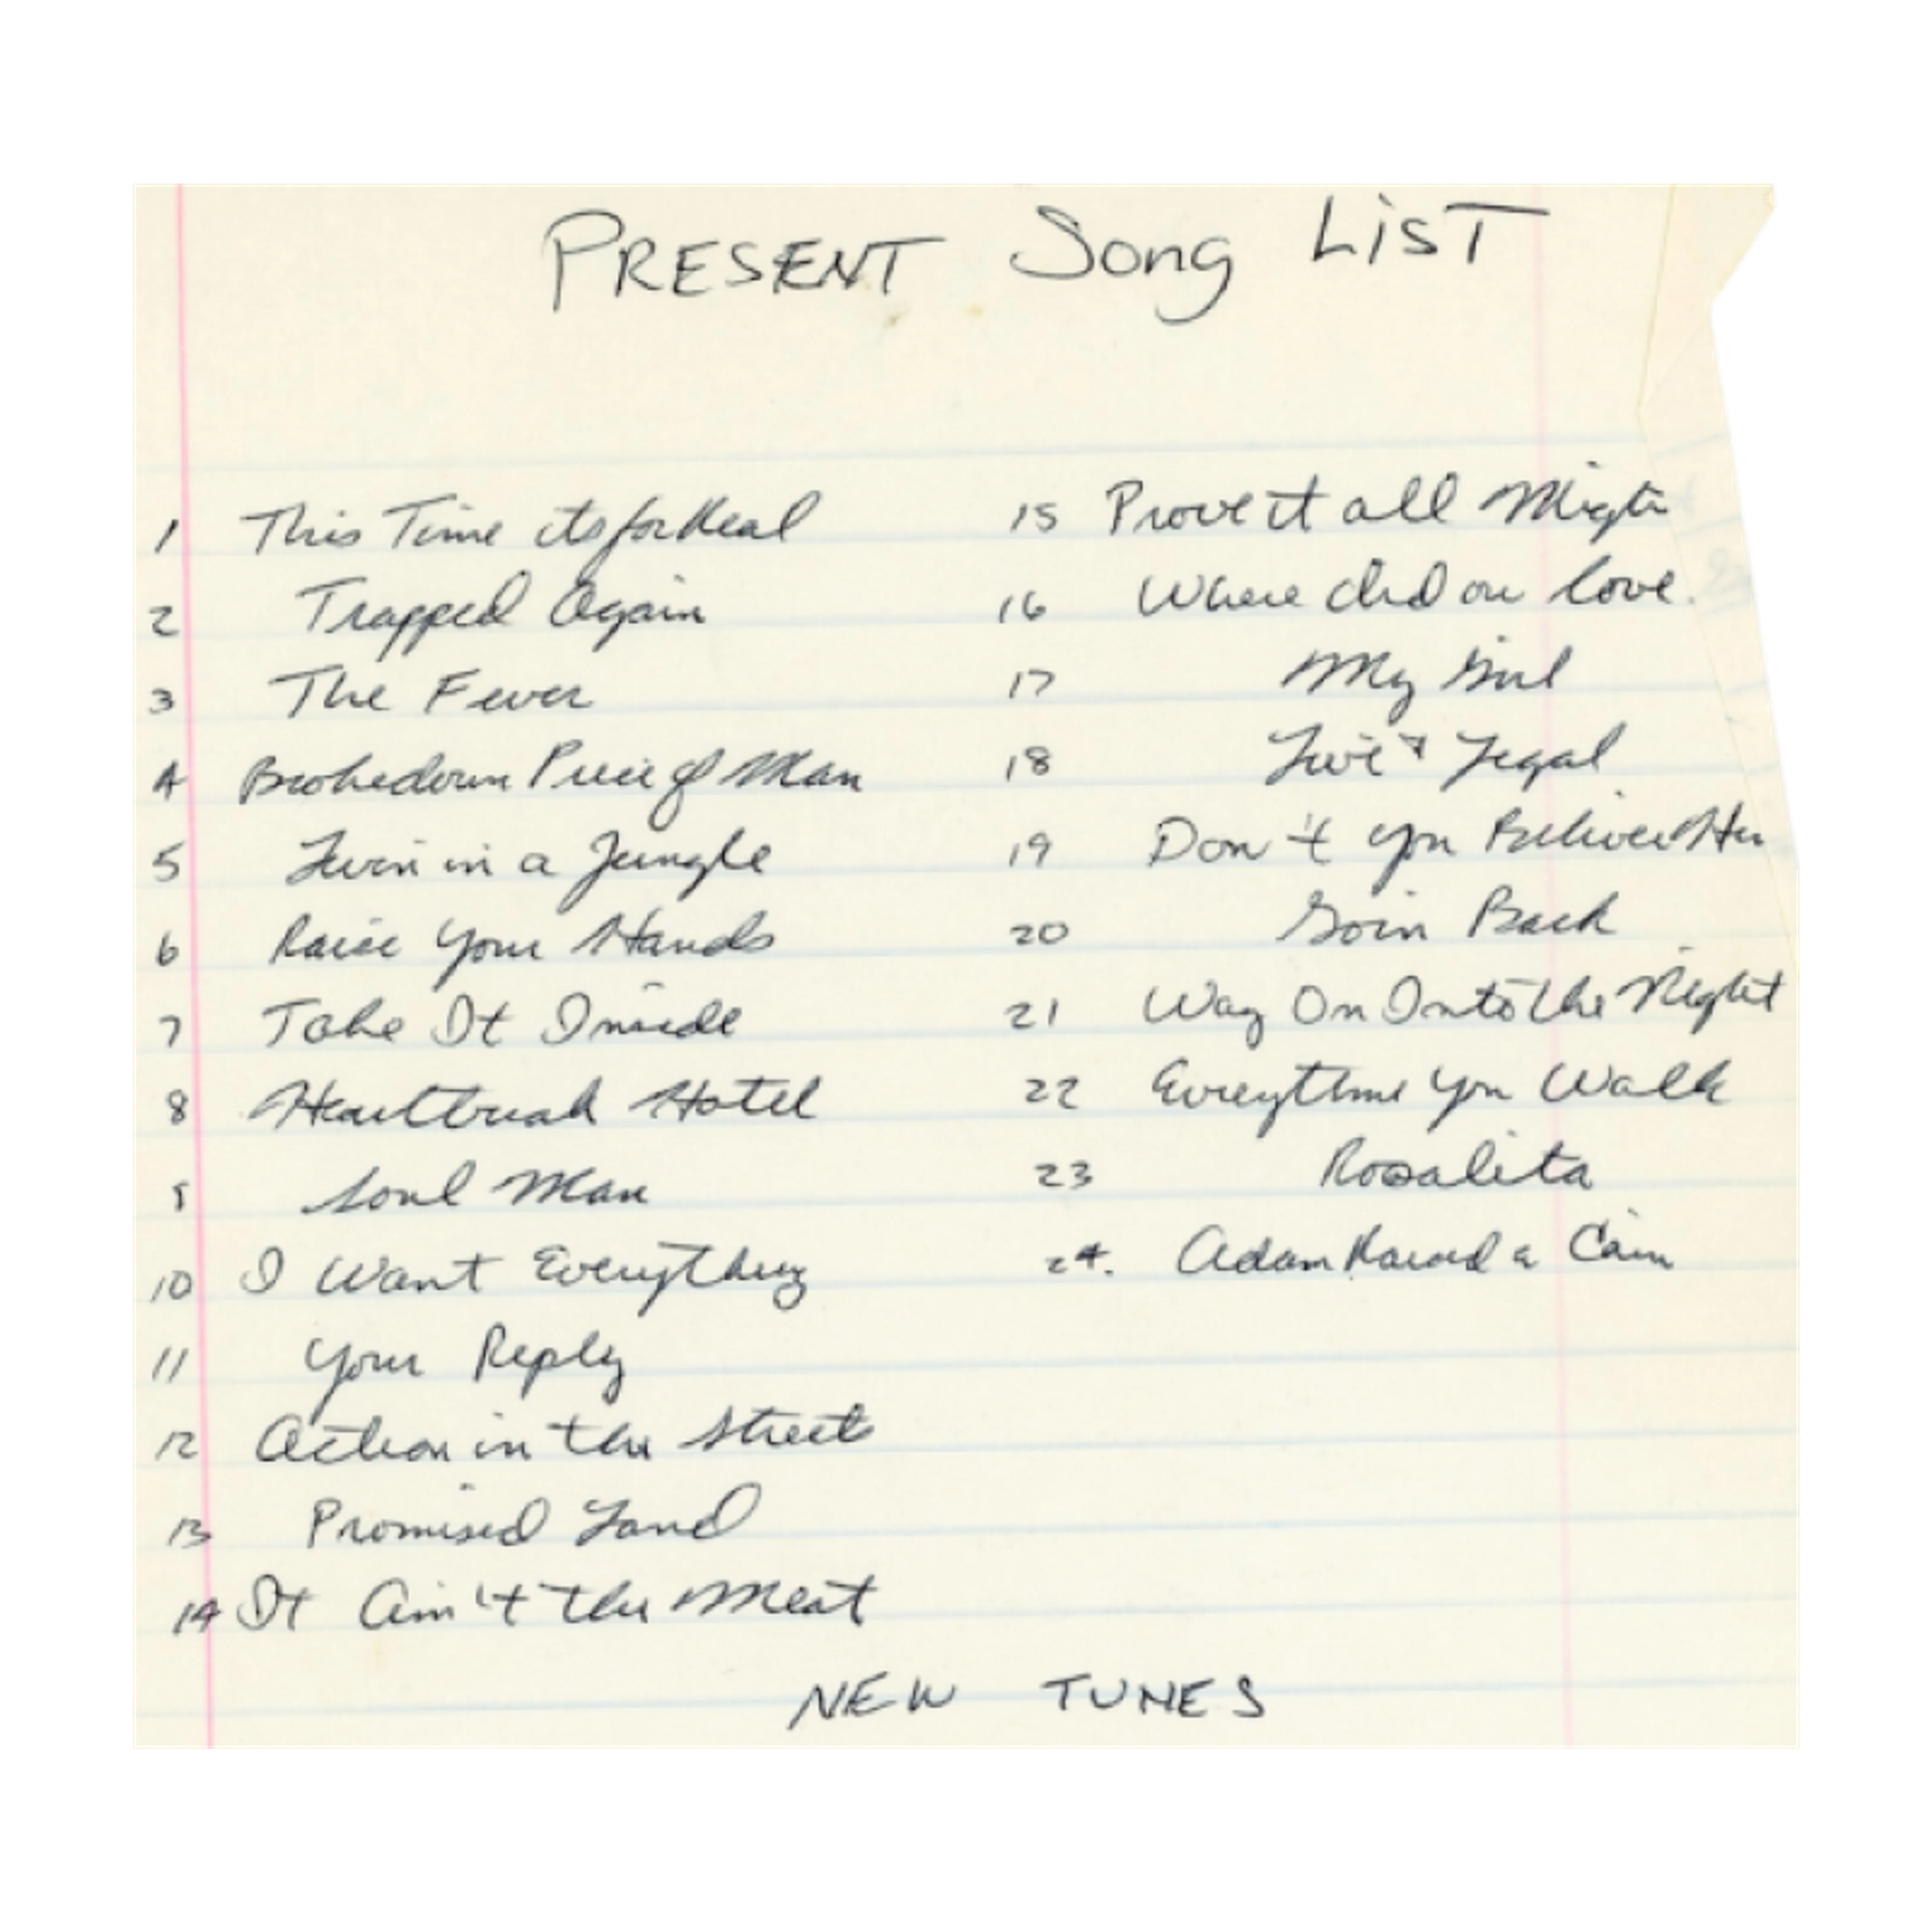 PRESENT Song LiST
1 This Time its for Real
2 Trapped Again
3 The Fever
4 Brokedown Piece of Man
5 Livin in a Jungle
6 Raise Your Hands
7 Take It Inside
8 Heartbreak Hotel
9 Soul Man
10 I Want Everything
11 Your Reply
12 Action in the Streets
13 Promised Land
14 It Ain't the Meat
15 Prove it all Night
16 Where did our love.
17 My Girl
18 Live + Legal
19 Don't you Believe Her
20 Goin Back
21 Way On Into the Night
22 Evreytime You Walk
23 Rosalita
24. Adam Raised a Cain
NEW TUNES